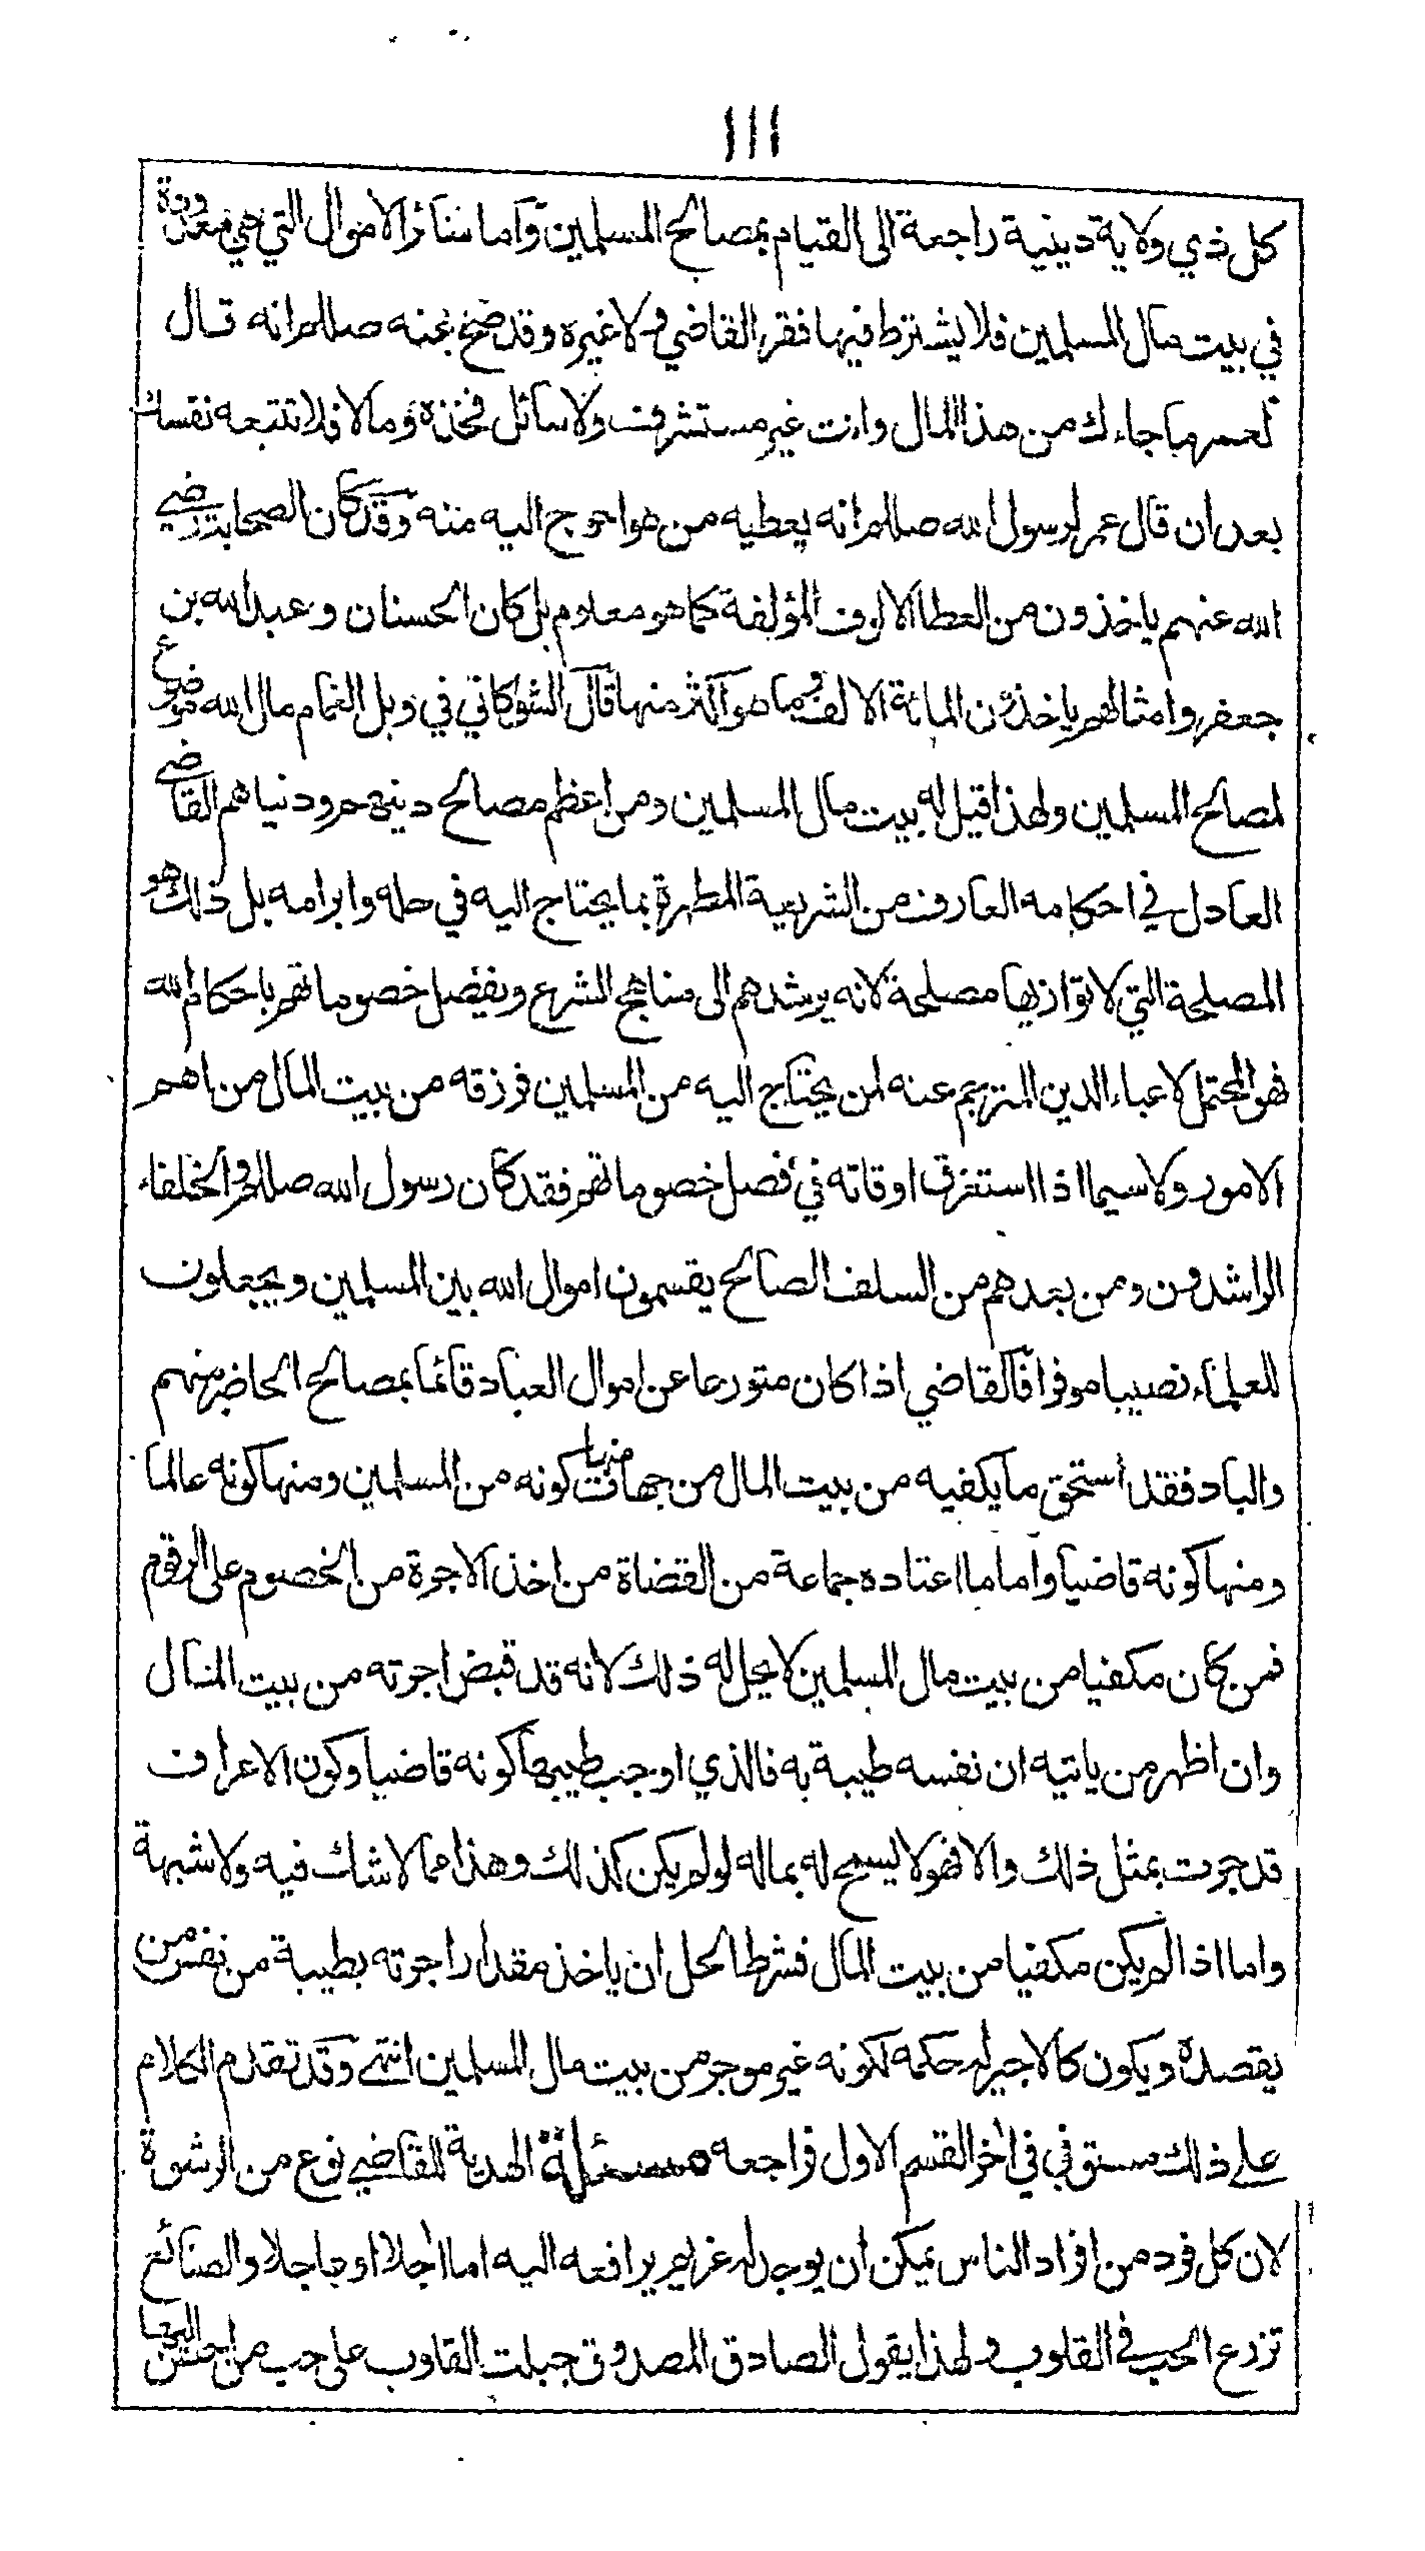 ١١١
كل ذي ولاية دينية راجعة الى القيام بمصالح المسلمين واما سائر الاموال التي هي معدودة
في بيت مال المسلمين فلا يشترط فيها فقر القاضي ولا غيره وقد صح عنه صللم انه قال
لعمر ما جاءك من هذا المال وانت غير مستشرف ولا سائل فخذه وما لا فلا تتبعه نفسك
بعد ان قال عمر لرسول الله صللم انه يعطيه من هو احوج اليه منه وقد كان الصحابة رضي
الله عنهم ياخذون من العطا الالوف المؤلفة كما هو معلوم بل كان الحسنان وعبد الله بن
جعفر وامثالهم ياخذون المائة الالف وما هو اكثر منها قال الشوكاني في وبل الغمام مال الله موضوع
لمصالح المسلمين ولهذا قيل له بيت مال المسلمين ومن اعظم مصالح دينهم ودنياهم القاضي
العادل في احكامه العارف من الشريعة المطهرة بما يحتاج اليه في حله وابرامه بل ذلك هو
المصلحة التي لا توازيها مصلحة لانه يرشدهم الى مناهج الشرع ويفصل خصوماتهم باحكام الله
فهو المحتمل لاعباء الدين المترجم عنه لمن يحتاج اليه من المسلمين فرزقه من بيت المال من اهم
الامور ولا سيما اذا استغرق اوقاته في فصل خصوماتهم فقد كان رسول الله صللم والخلفاء
الراشدون ومن بعدهم من السلف الصالح يقسمون اموال الله بين المسلمين ويجعلون
للعلماء نصيبا موفرا فالقاضي اذا كان متورعا عن اموال العباد قائما بمصالح الحاضر منهم
والباد فقد استحق ما يكفيه من بيت المال من جهات منها كونه من المسلمين ومنها كونه عالما
ومنها كونه قاضيا واما ما اعتاده جماعة من القضاة من اخذ الاجرة من الخصوم على الرقوم
فمن كان مكفيا من بيت مال المسلمين لا يحل له ذلك لانه قد قبض اجرته من بيت المال
وان اظهر من ياتيه ان نفسه طيبة به فالذي اوجب طيبها كونه قاضيا وكون الاعراف
قد جرت بمثل ذلك والا فهو لا يسمح له بماله لو لم يكن كذلك وهذا مما لا شك فيه ولا شبهة
واما اذا لم يكن مكفيا من بيت المال فشرط الحل ان ياخذ مقدار اجرته بطيبة من نفس من
يقصده ويكون كالاجير له حكمه لكونه غير موجر من بيت مال المسلمين انتهى وقد تقدم الكلام
على ذلك مستوفى في اخر القسم الاول فراجعه مسئلة الهدية للقاضي نوع من الرشوة
لان كل فرد من افراد الناس يمكن ان يوجد له غريم يرافعه اليه اما اجلا او عاجلا والصنائع
تزرع الحب في القلوب ولهذا يقول الصادق المصدوق جبلت القلوب على حب من احسن اليها